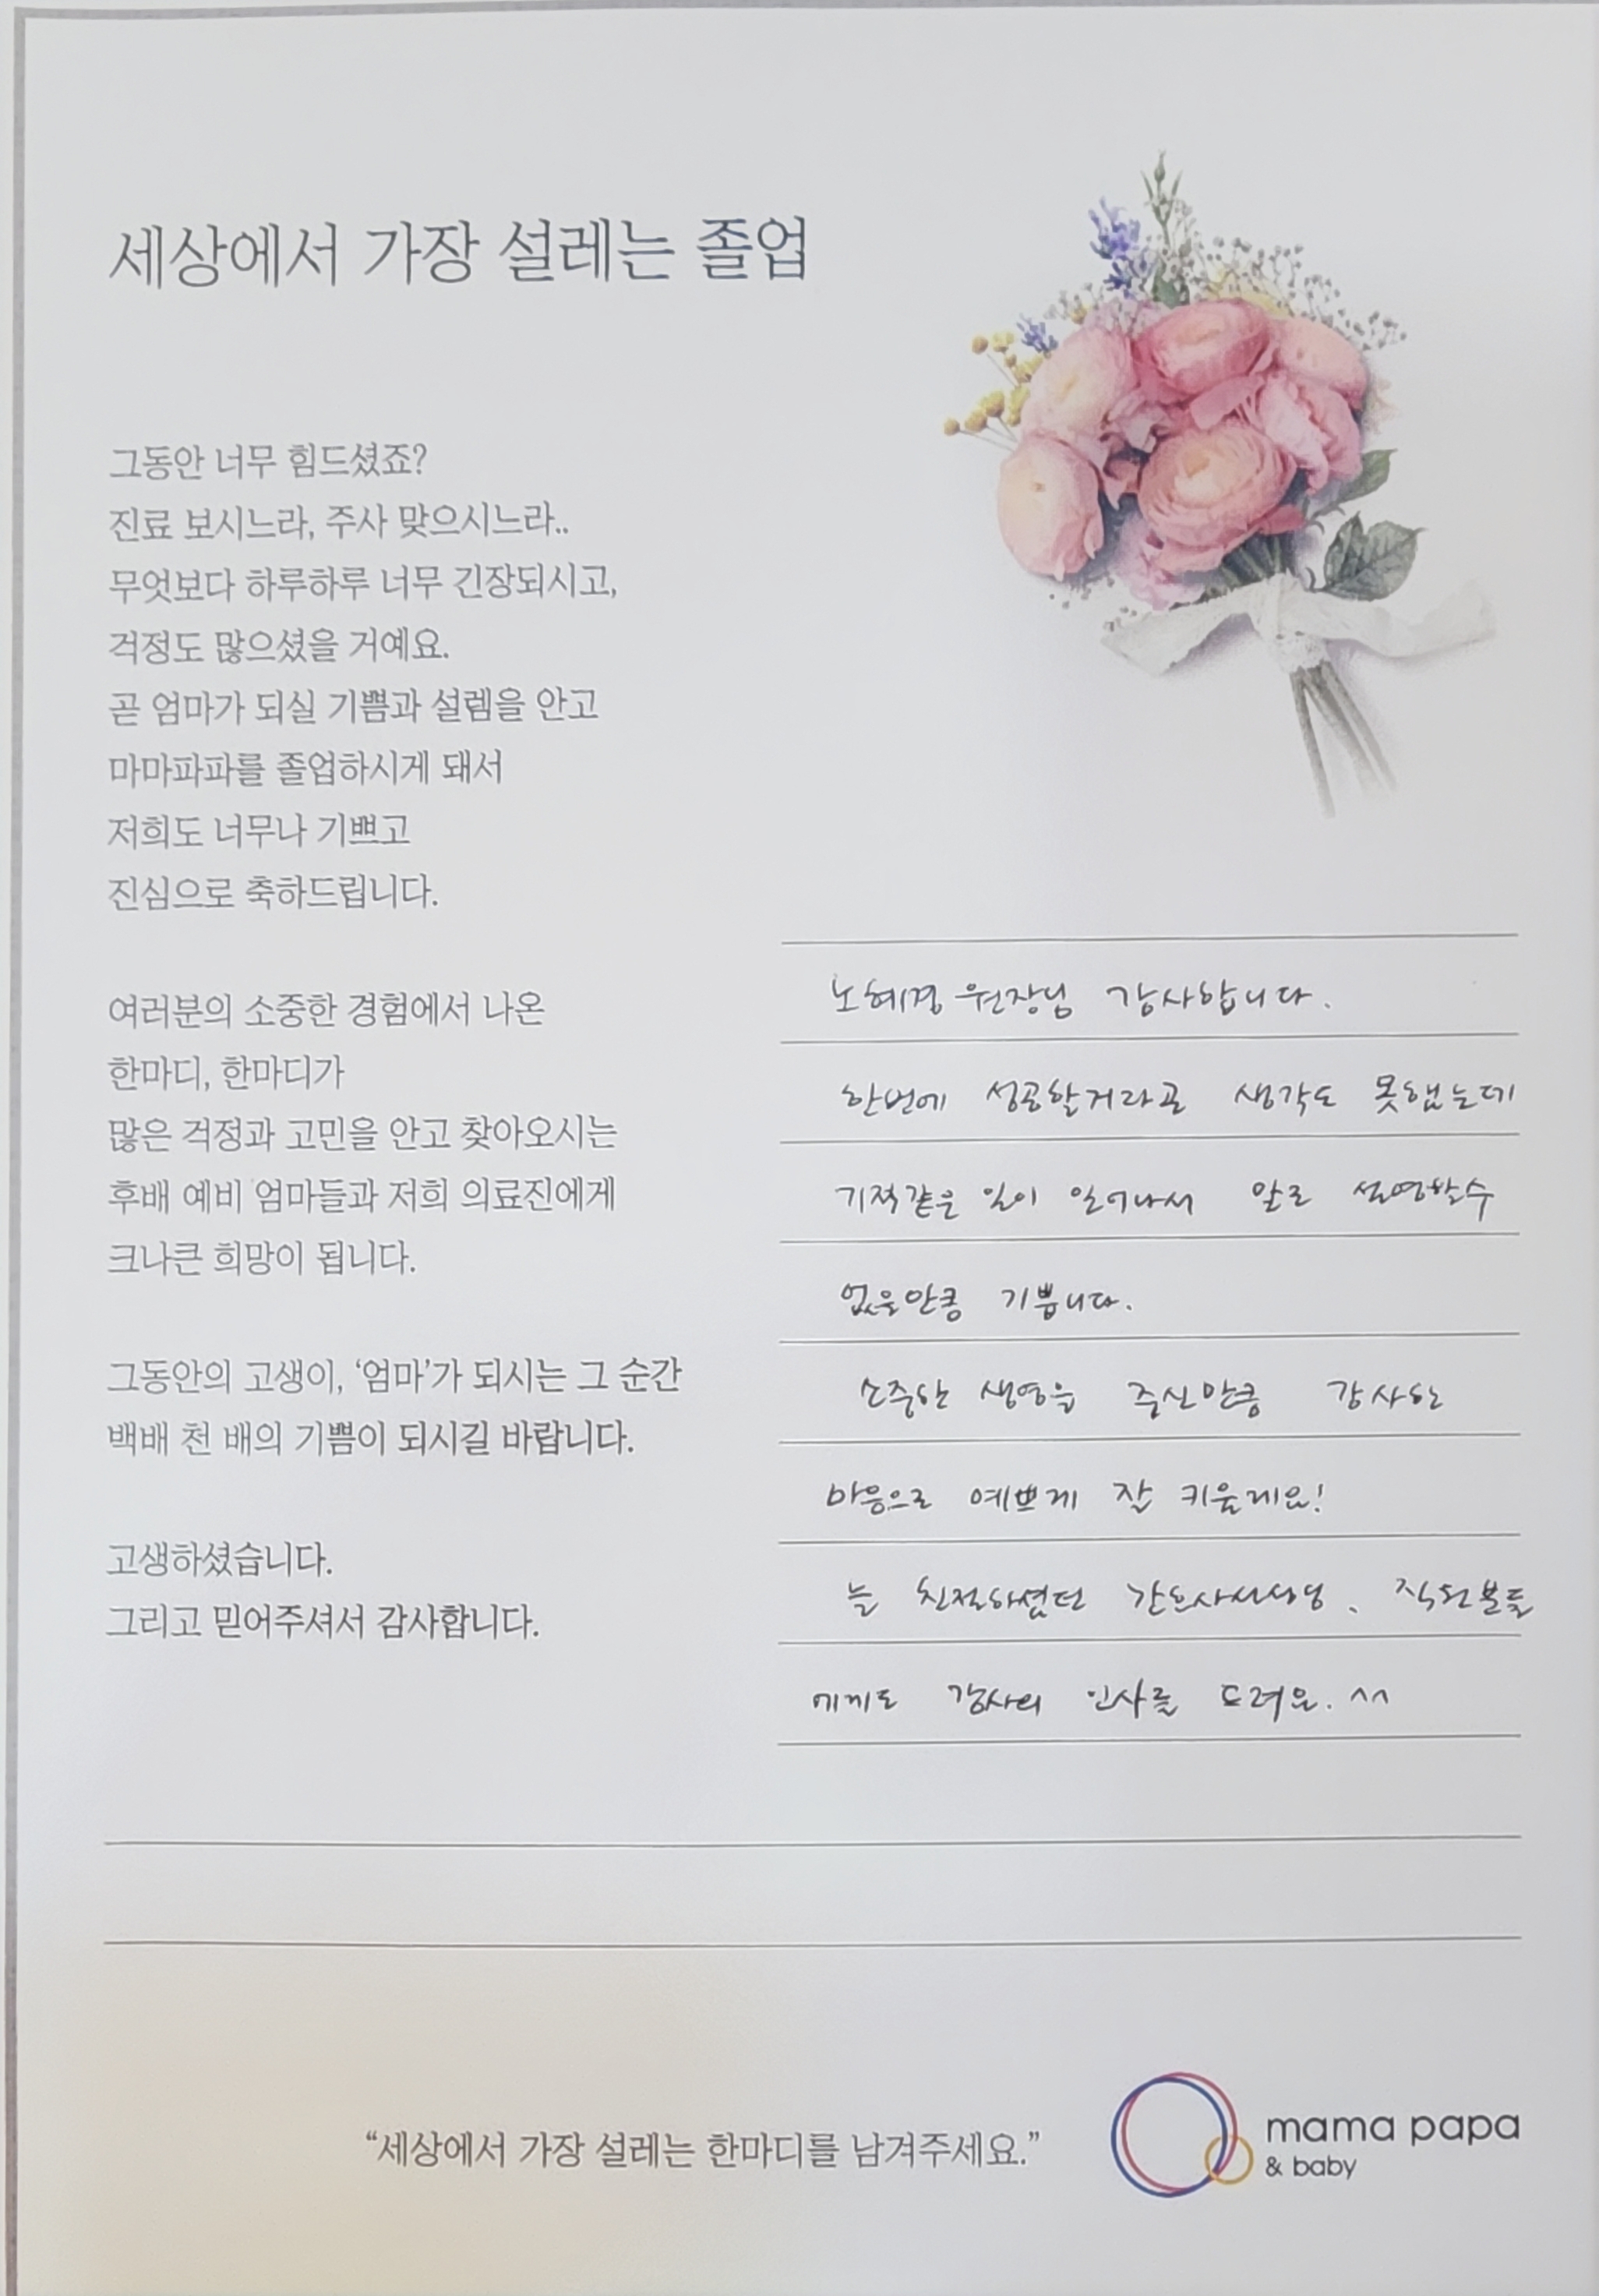 세상에서 가장 설레는 졸업
그동안 너무 힘드셨죠?
진료 보시느라, 주사 맞으시느라..
무엇보다 하루하루 너무 긴장되시고,
걱정도 많으셨을 거예요.
곧 엄마가 되실 기쁨과 설렘을 안고
마마파파를 졸업하시게 돼서
저희도 너무나 기쁘고
진심으로 축하드립니다.
여러분의 소중한 경험에서 나온
한마디, 한마디가
많은 걱정과 고민을 안고 찾아오시는
후배 예비 엄마들과 저희 의료진에게
크나큰 희망이 됩니다.
그동안의 고생이, ‘엄마’가 되시는 그 순간
백배 천 배의 기쁨이 되시길 바랍니다.
고생하셨습니다.
그리고 믿어주셔서 감사합니다.
노혜경 원장님 감사합니다.
한번에 성공할거라곤 생각도 못했는데
기적같은 일이 일어나서 말로 설명할수
없을만큼 기쁩니다.
소중한 생명을 주신만큼 감사한
마음으로 예쁘게 잘 키울게요!
늘 친절하셨던 간호사선생님, 직원분들
에게도 감사의 인사를 드려요. ^^
“세상에서 가장 설레는 한마디를 남겨주세요.”
mama papa
& baby